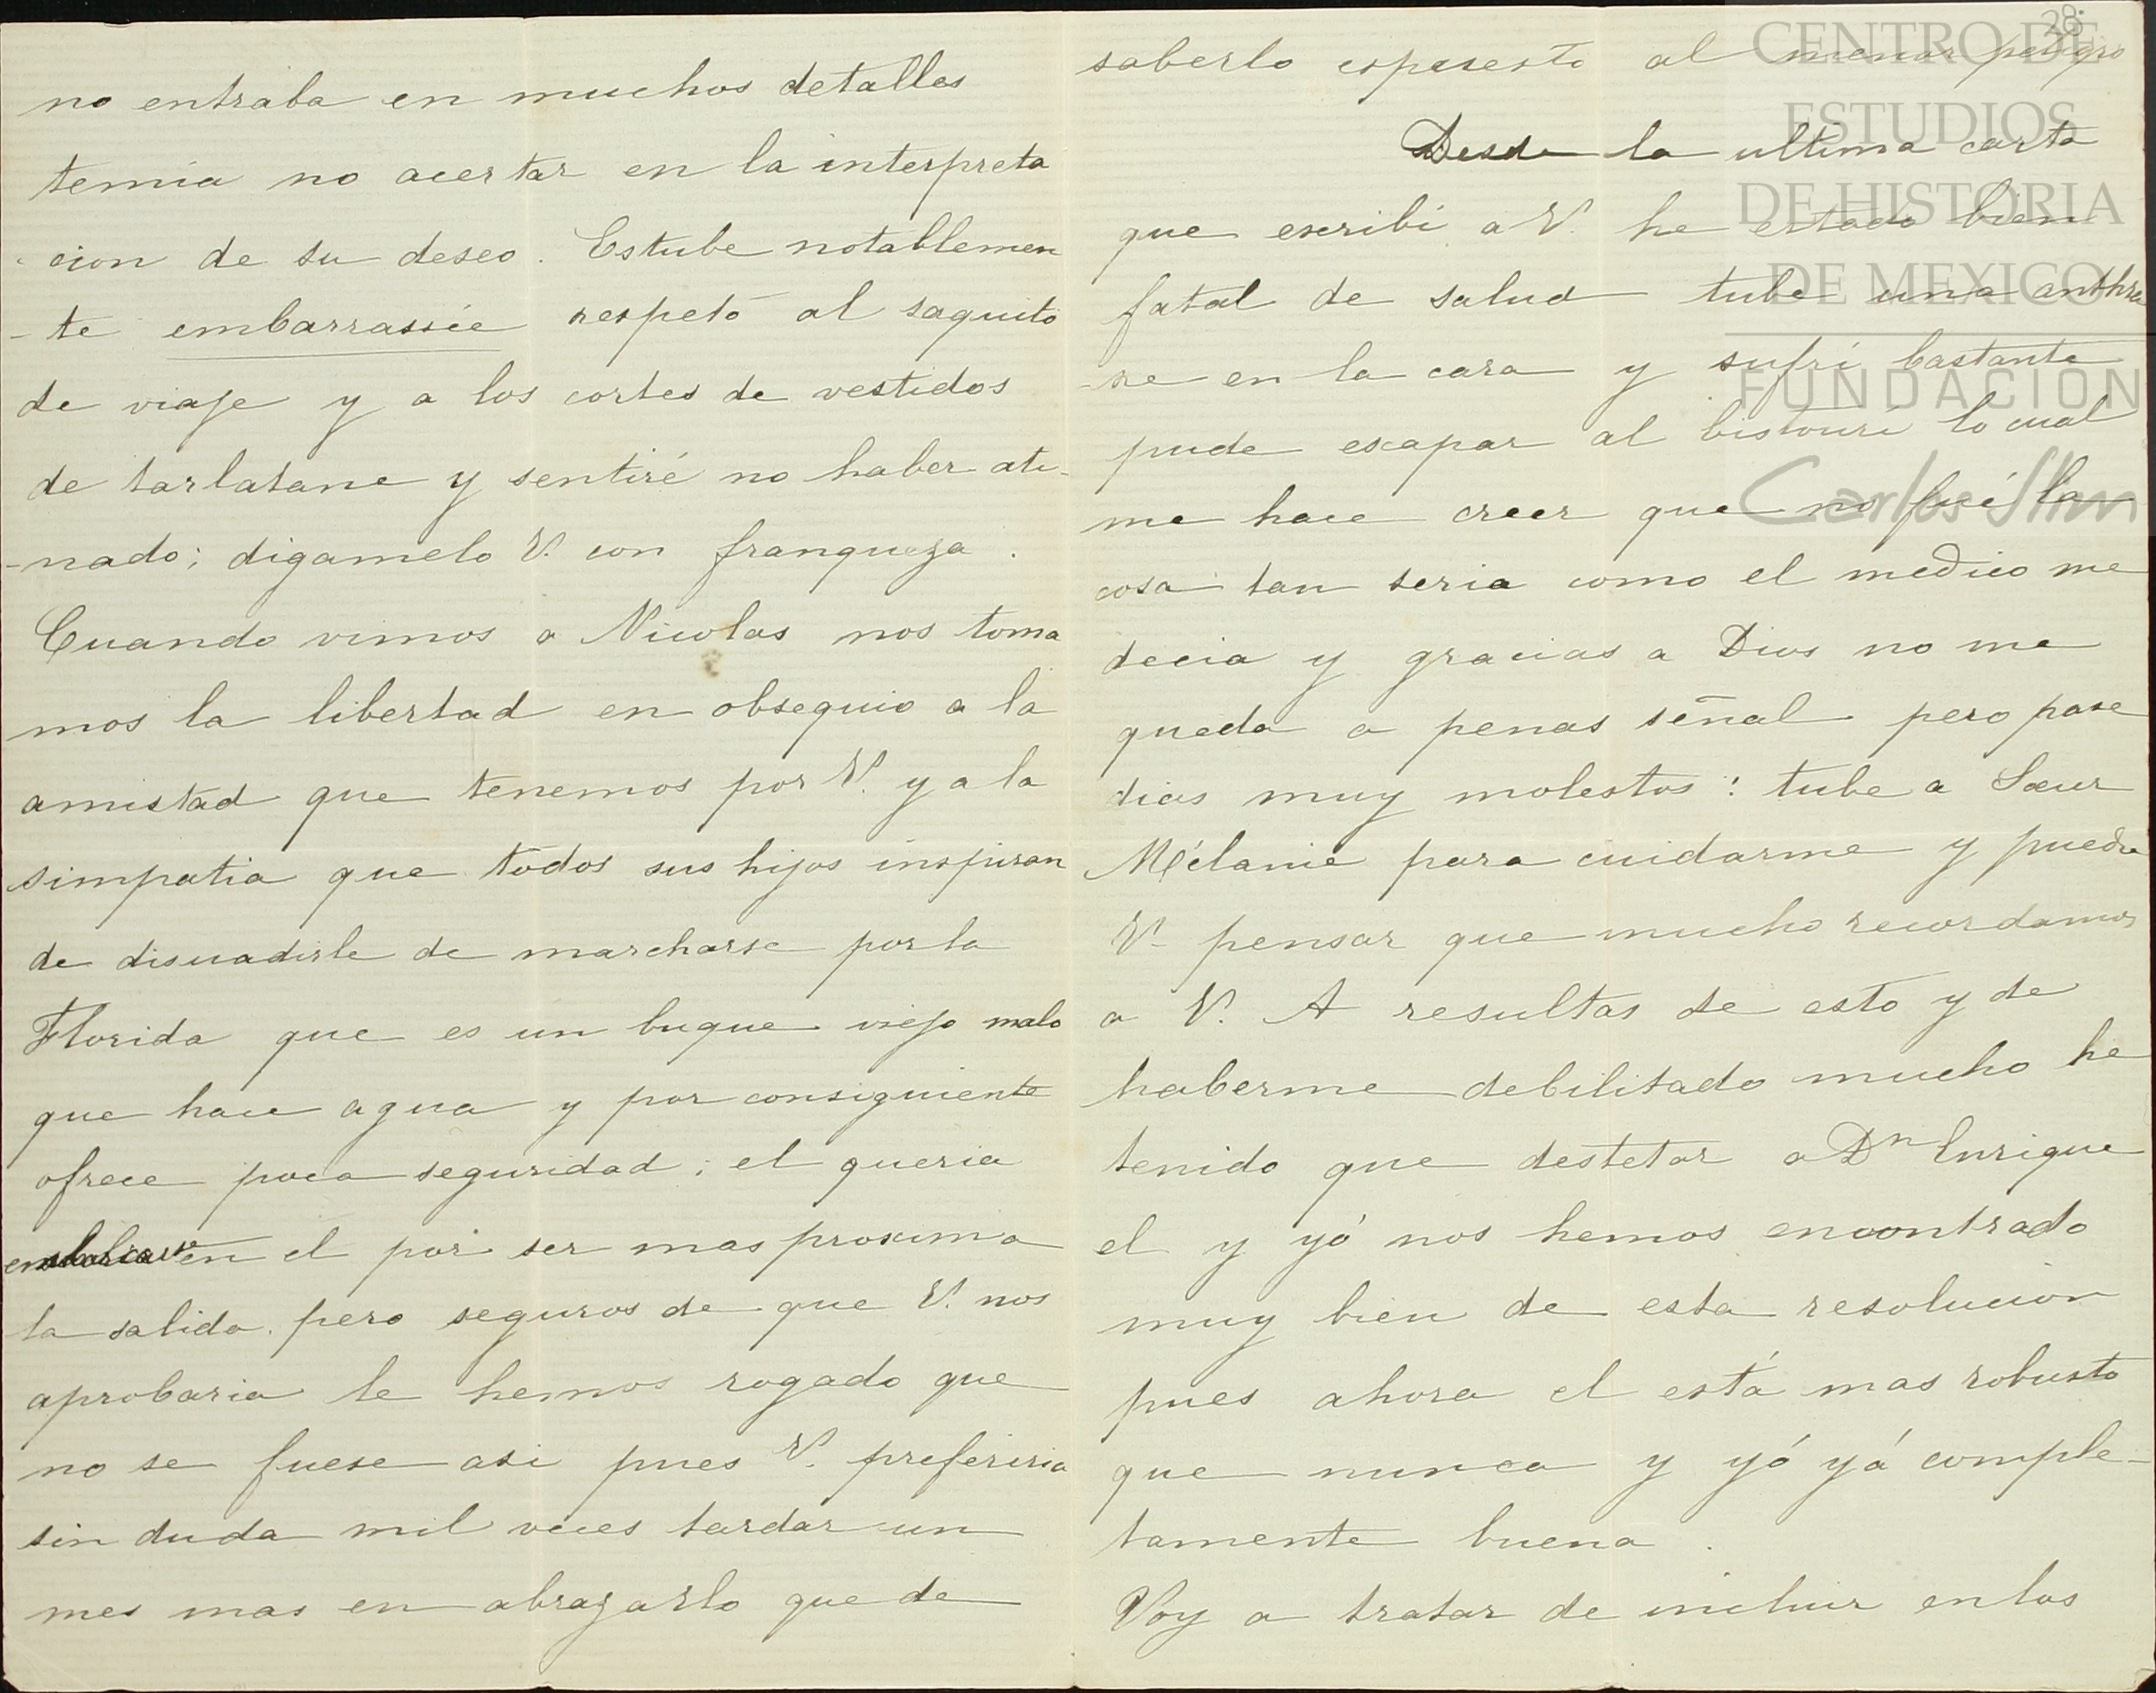 no entraba en muchos detalles
temia no acertar en la interpreta
cion de su deseo. Estube notablemen
-te embarrassée respetó al saquito
de viaje y a los cortes de vestidos
de tarlatane y sentiré no haber ati-
-nado; digamelo V. con franqueza.
Cuando vimos a Nicolas nos toma
mos la libertad en obsequio a la
amistad que tenemos por V. y a la
simpatia que todos sus hijos inspiran
de disuadirle de marcharse por la
Florida que es un buque viejo malo
que hace agua y por consiguiente
ofrece poca seguridad; el queria
en el por ser mas proxima
la salida. pero seguros de que V. nos
aprobaria le hemos rogado que
no se fuese asi pues V. preferiria
sin duda mil veces tardar un
mes mas en abrazarlo que de
28.
saberlo espuesto al menor peligro
Desde la ultima carta
que escribi a V. he estado bien
fatal de salud tube una anthra
-re en la cara y sufri bastante
pude escapar al bistouri lo cual
me hace creer que no fué la
cosa tan seria como el medico me
decia y gracias a Dios no me
queda a penas señal pero pase
dias muy molestos: tube a Sœur
Mélanie para cuidarme y puede
V. pensar que mucho recordamos
a V. A resultas de esto y de
haberme debilitado mucho he
tenido que destetar a Dn Enrique
el y yó nos hemos encontrado
muy bien de esta resolucion
pues ahora el está mas robusto
que nunca y yó yá comple-
tamente buena.
Voy a tratar de incluir en los
CENTRO DE
ESTUDIOS
DE HISTORIA
DE MEXICO
FUNDACIÓN
Carlos Slim